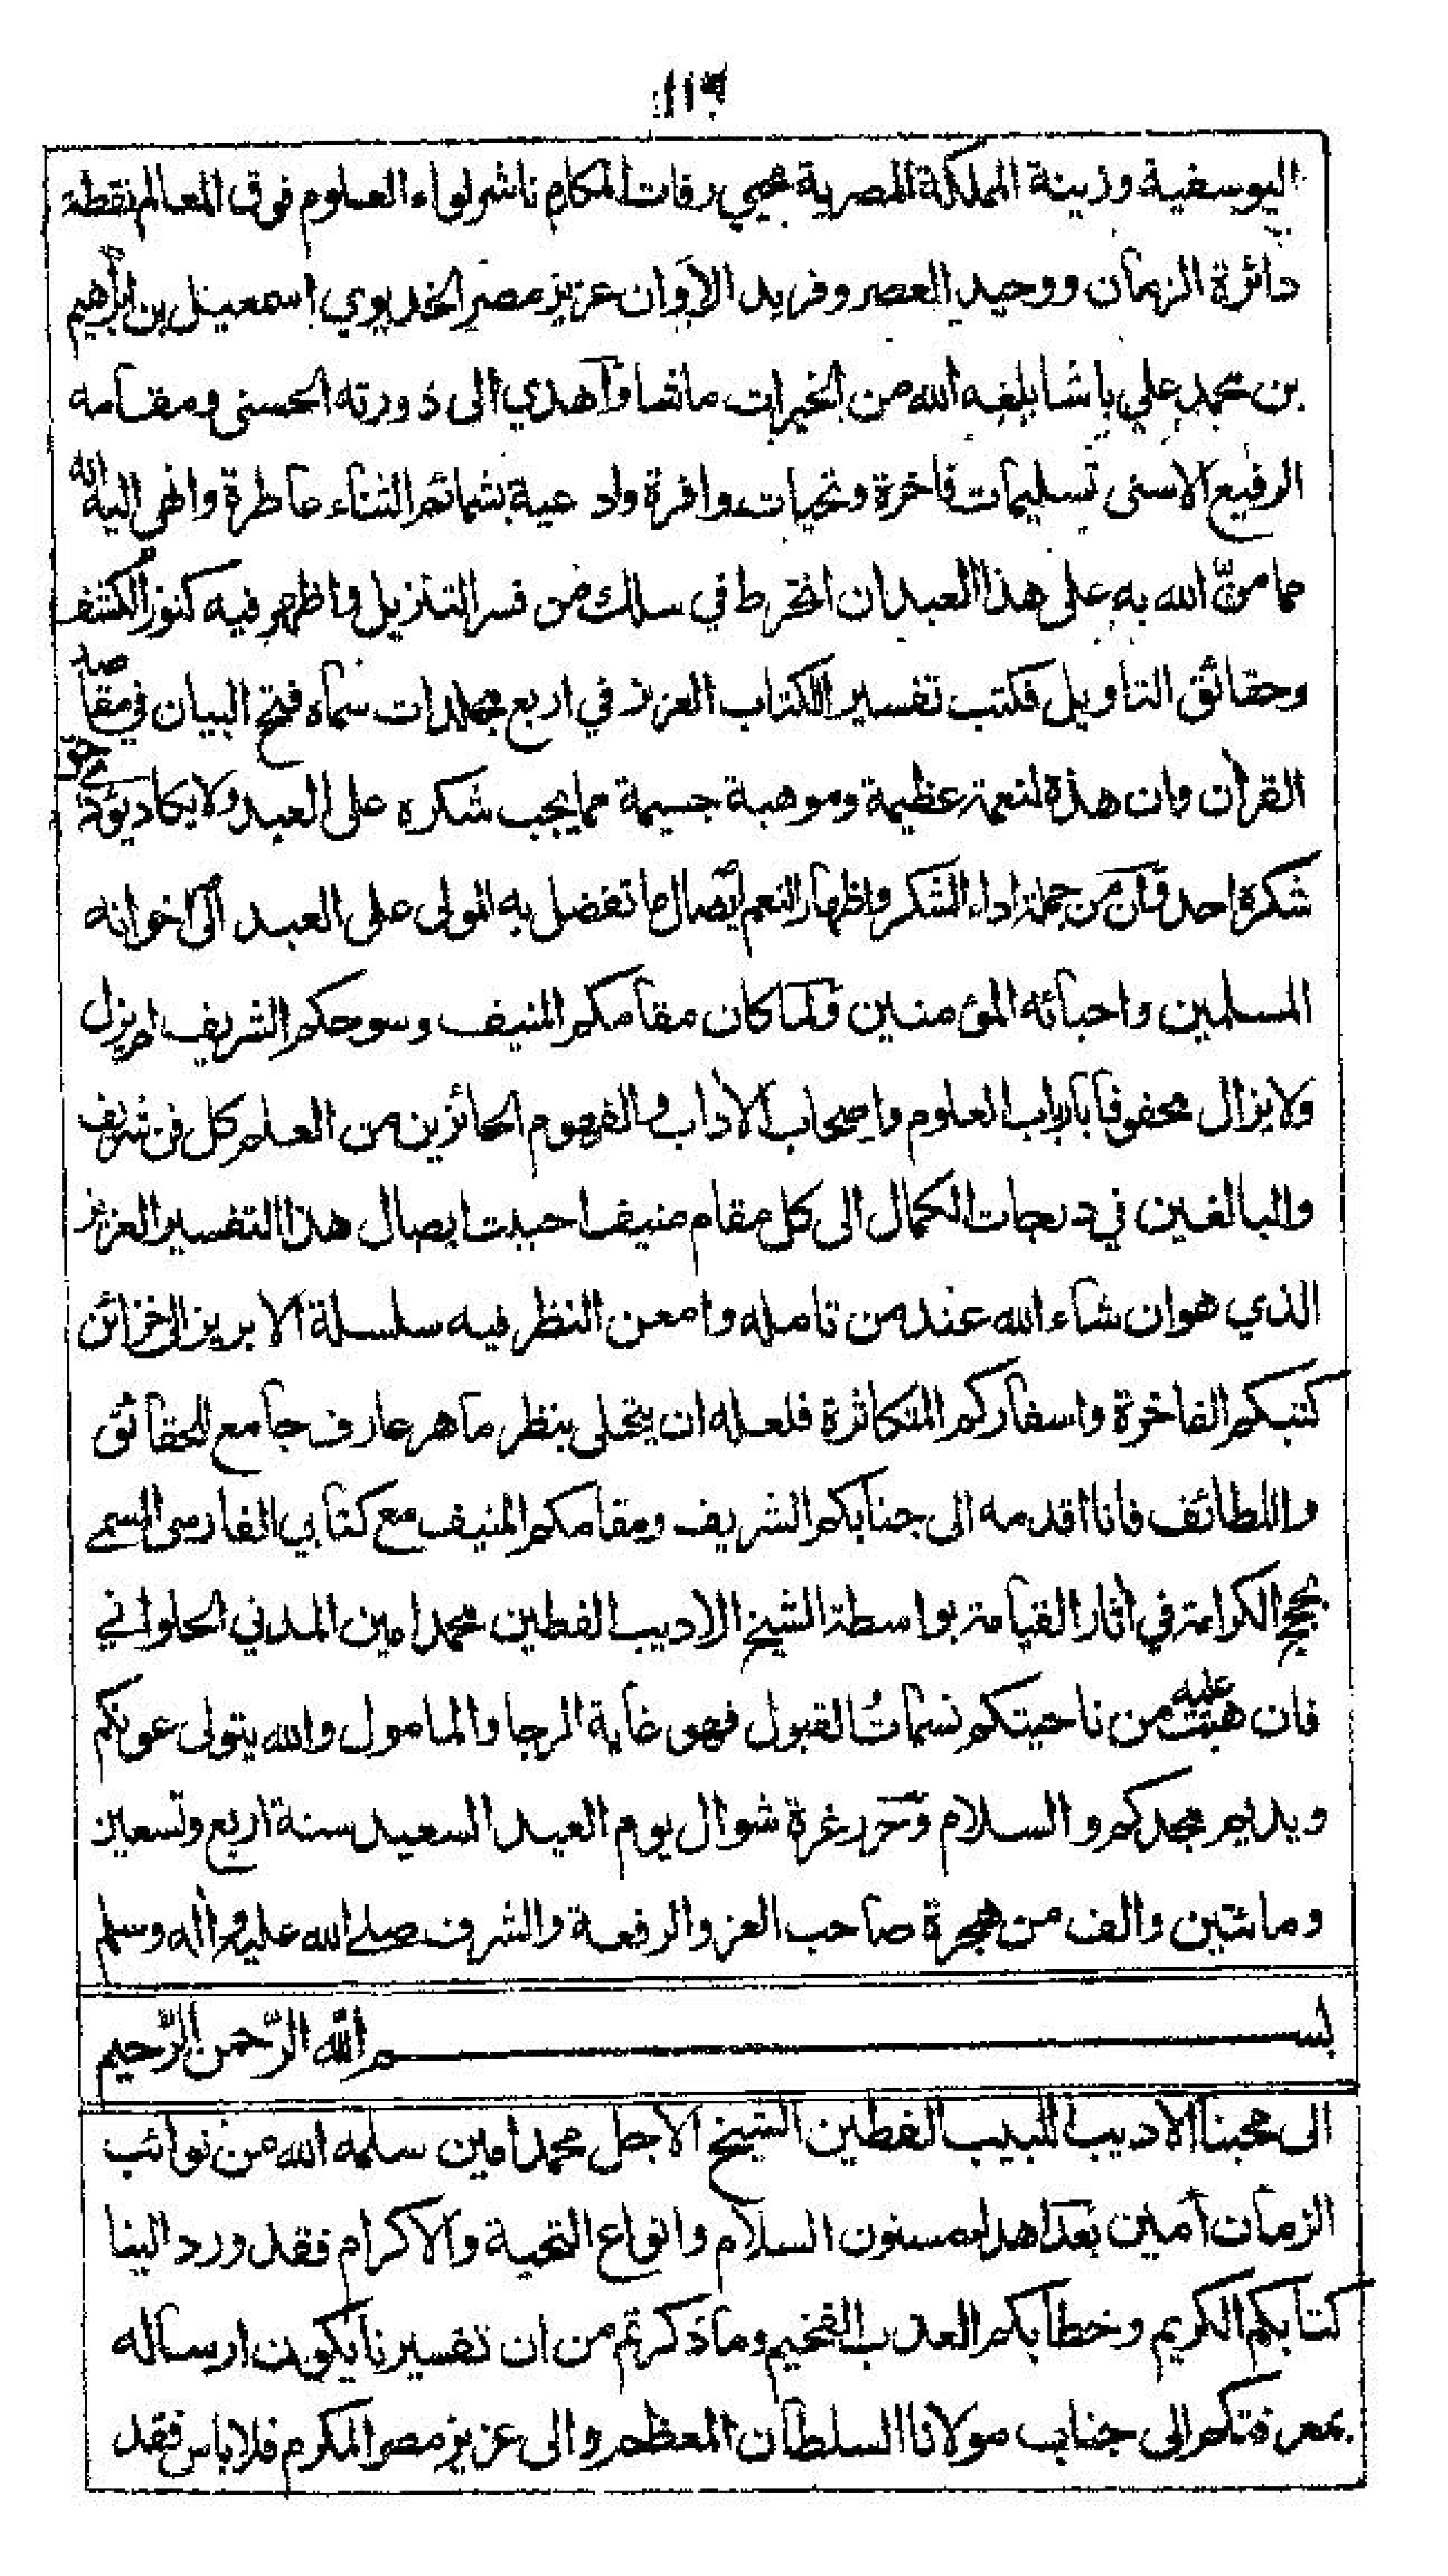 ١١٣
اليوسفية وزينة المملكة المصرية محيي رفات المكارم ناشر لواء العلوم فوق المعالم نقطة
دائرة الزمان ووحيد العصر وفريد الاوان عزيز مصر الخديوي اسمعيل بن ابراهيم
بن محمد علي باشا بلغه الله من الخيرات ماتشا وأهدي الى ذورته الحسنى ومقامه
الرفيع الاسنى تسليمات فاخرة وتحيات وافرة وادعية بشمائم الثناء عاطرة وانهى اليه انه
مما منّ الله به على هذا العبد ان انخرط في سلك من فسر التنزيل واظهر فيه كنوز الكشف
وحقائق التاويل فكتب تفسير الكتاب العزيز في اربع مجلدات سماه فتح البيان في مقاصد
القرآن وان هذه لنعمة عظيمة وموهبة جسيمة مما يجب شكره على العبد ولا يكاد يؤدي حق
شكره احد وان من جملة اداء الشكر واظهار النعم ايصال ما تفضل به المولى على العبد الى اخوانه
المسلمين واحبائه المؤمنين ولما كان مقامكم المنيف وسوحكم الشريف لم يزل
ولا يزال محفوفا بارباب العلوم واصحاب الاداب والفهوم الحائزين من العلم كل فن شريف
والبالغين في درجات الكمال الى كل مقام منيف احببت ايصال هذا التفسير العزيز
الذي هو ان شاء الله عند من تامله وامعن النظر فيه سلسلة الابريز الى خزائن
كتبكم الفاخرة واسفاركم المتكاثرة فلعله ان يتحلى بنظر ماهر عارف جامع للحقائق
واللطائف فانا اقدمه الى جنابكم الشريف ومقامكم المنيف مع كتابي الفارسى المسمى
بحجج الكرامة في آثار القيامة بواسطة الشيخ الاديب الفطين محمد امين المدني الحلواني
فان هبت عليه من ناحيتكم نسماتُ القبول فهو غاية الرجا والمامول والله يتولى عونكم
ويديم مجدكم والسلام وحُرر غرة شوال يوم العيد السعيد سنة اربع وتسعين
ومائتين والف من هجرة صاحب العز والرفعة والشرف صلى الله عليه وآله وسلم
بســـــــــــــــــــم الله الرّحمن الرّحيم
الى محبنا الاديب اللبيب الفطين الشيخ الاجل محمد امين سلمه الله من نوائب
الزمان آمين بعد اهداء مسنون السلام وانواع التحية والاكرام فقد ورد الينا
كتابكم الكريم وخطابكم العذب الفخيم وما ذكرتم من ان تفسيرنا يكون ارساله
بمعرفتكم الى جناب مولانا السلطان المعظم والى عزيز مصر المكرم فلا باس فقد